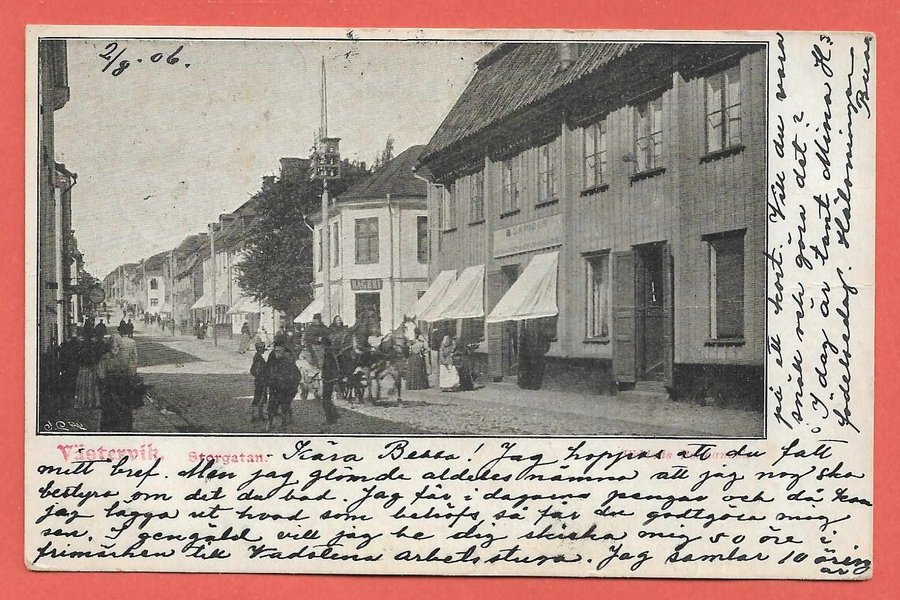 2/8. 06.
BAGERI
Västervik Storgatan. Kära Bessa! Jag hoppas att du fatt
mitt bref. Men jag glömde alldeles nämna att jag nog ska
bestyra om det du bad. Jag får i dagarna pengar och då kan
jag lägga ut hvad som behöfs, så får du godtgöra mig
sen. I gengäld vill jag be dig skicka mig 50 öre i
frimärken till Vadstena arbetsstuga. Jag samlar 10 öring
ar
på ett kort. Vill du vara
snäll och göra det?
I dag är tant Minna H:s
födelsedag. Hälsningar